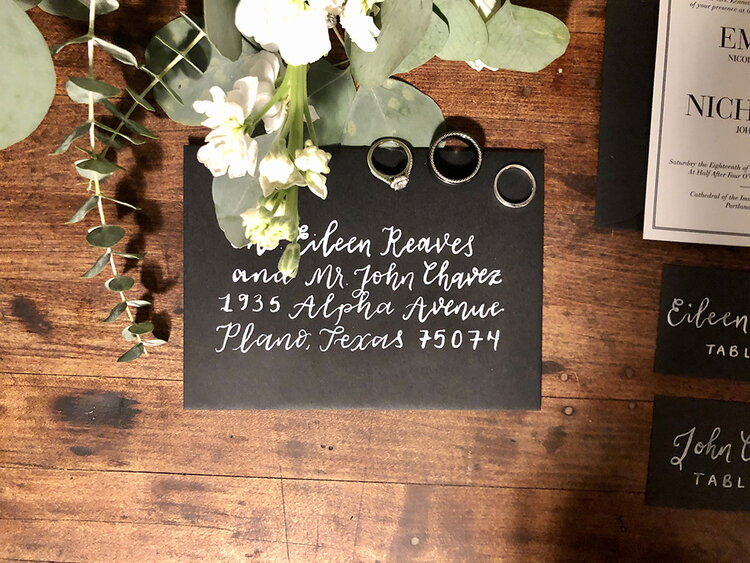 Eileen Reaves
and Mr. John Chavez
1935 Alpha Avenue
Plano, Texas 75074
of your presence at
EM
NICOL
NICH
JO
Saturday the Eighteenth of
At Half After Four O'
Cathedral of the Im
Portland
Eileen
TABL
John C
TABL